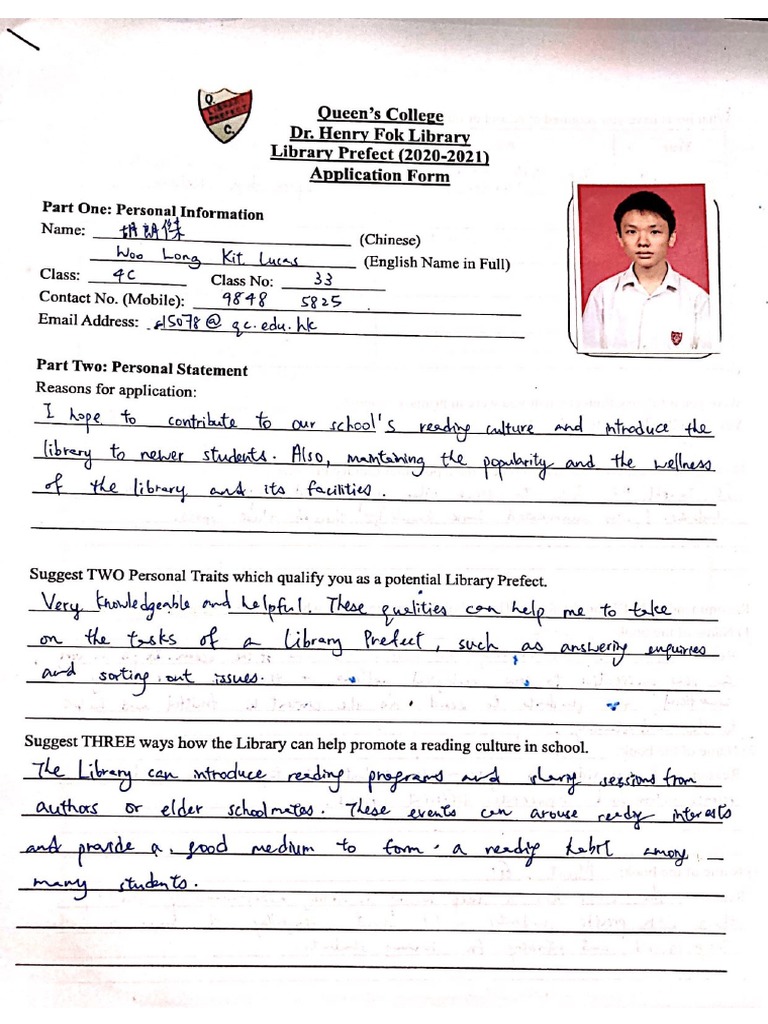 Q.
LIBRARY
PREFECT
C.
Queen's College
Dr. Henry Fok Library
Library Prefect (2020-2021)
Application Form
Part One: Personal Information
Name: 胡朗傑 (Chinese)
Woo Long Kit Lucas (English Name in Full)
Class: 4C Class No: 33
Contact No. (Mobile): 9848 5825
Email Address: s15078@qc.edu.hk
Part Two: Personal Statement
Reasons for application:
I hope to contribute to our school's reading culture and introduce the
library to newer students. Also, maintaining the popularity and the wellness
of the library and its facilities.
Suggest TWO Personal Traits which qualify you as a potential Library Prefect.
Very knowledgeable and helpful. These qualities can help me to take
on the tasks of a Library Prefect, such as answering enquiries
and sorting out issues.
Suggest THREE ways how the Library can help promote a reading culture in school.
The Library can introduce reading programs and sharing sessions from
authors or elder schoolmates. These events can arouse reading interests
and provide a good medium to form a reading habit among
many students.